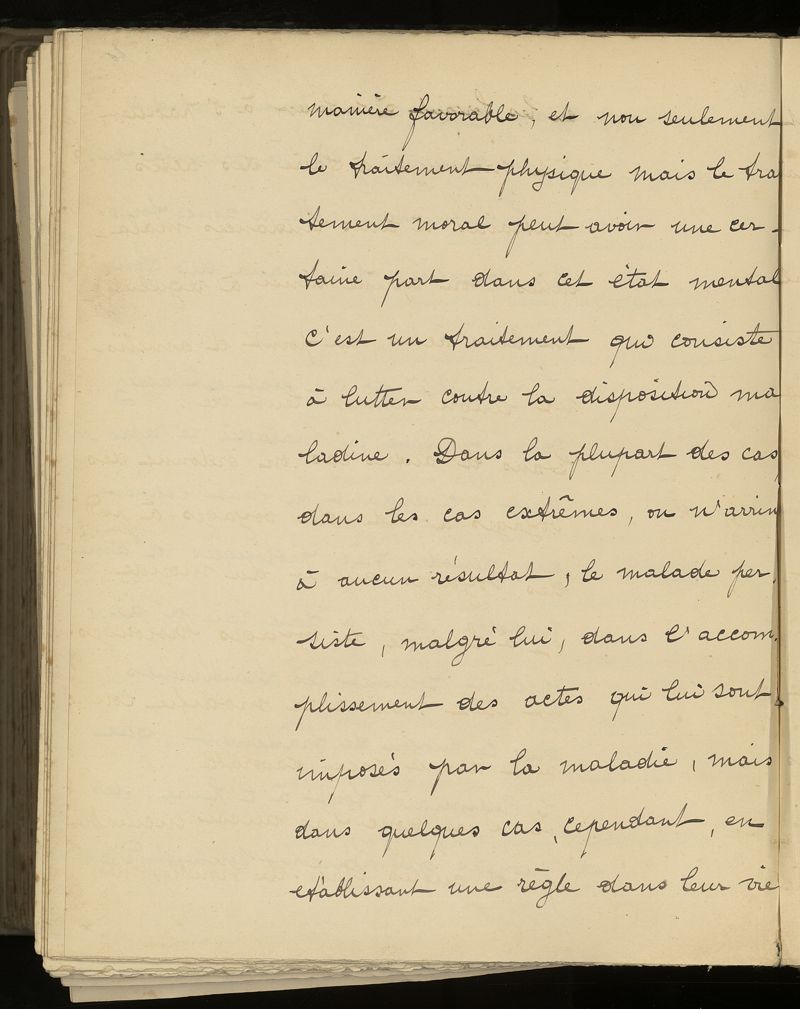 manière favorable, et non seulement
le traitement physique mais le tra
tement moral peut avoir une cer-
taine part dans cet état mental
c'est un traitement qui consiste
à lutter contre la disposition ma
ladive. Dans la plupart des cas,
dans les cas extrêmes, on n'arriv
à aucun résultat, le malade per-
siste, malgré lui, dans l'accom-
plissement des actes qui lui sont
imposés par la maladie, mais
dans quelques cas, cependant, en
établissant une règle dans leur vie